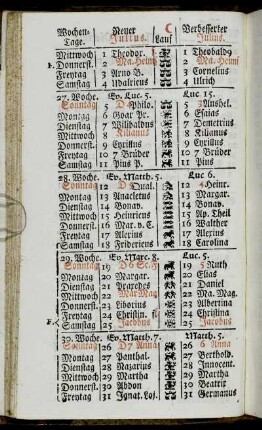 Wochen- Neuer C Verbesserter
Tage. Julius. Lauf Julius.
Mittwoch 1 Theodor. 1 Theobald9
F. Donnerst. 2 Ma. Heims 2 Ma. Heims
Freytag 3 Arno B. 3 Cornelius
Samstag 4 Udalricus 4 Ulrich
27. Woche. Ev. Luc. 5. Luc 15.
Sonntag 5 D Philo. 5 Anshel.
Montag 6 Goar Pr. 6 Esaias
Dienstag 7 Willibaldus 7 Demetrius
Mittwoch 8 Kilianus 8 Kilianus
Donnerst. 9 Cyrillus 9 Cyrillus
Freytag 10 7 Brüder 10 7 Brüder
Samstag 11 Pius 11 Pius
28. Woche. Ev. Matth. 5. Luc 6.
Sonntag 12 D Dual. 12 4 Heinr.
Montag 13 Anacletus 13 Margar.
Dienstag 14 Bonav. 14 Bonav.
Mittwoch 15 Heinricus 15 Ap. Theil
Donnerst. 16 Mar. v. C. 16 Walther
Freytag 17 Alexius 17 Alexius
Samstag 18 Fridericus 18 Carolina
29. Woche. Ev. Marc. 8. Luc. 5.
Sonntag 19 D 6 Sc. 19 5 Ruth
Montag 20 Margar. 20 Elias
Dienstag 21 Praxedes 21 Daniel
Mittwoch 22 Mar. Mag. 22 Ma. Mag.
Donnerst. 23 Liborius 23 Albertina
Freytag 24 Christin. 24 Christina
F. Samstag 25 Jacobus 25 Jacobus
30. Woche. Ev. Matth. 7. Matth. 5.
Sonntag 26 D 7 Anna 26 6 Anna
Montag 27 Panthal. 27 Berthold.
Dienstag 28 Nazarius 28 Innocent.
Mittwoch 29 Martha 29 Martha
Donnerst. 30 Abdon 30 Beatrix
Freytag 31 Ignat. Loj. 31 Germanus